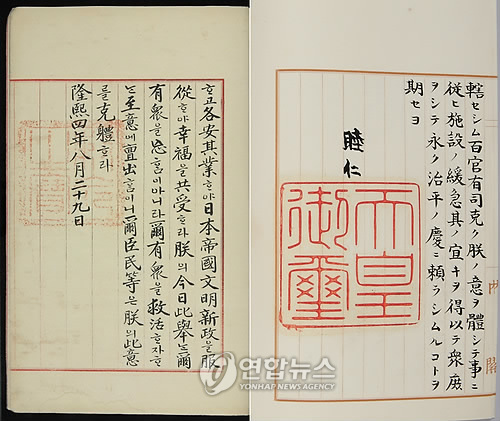 ᄒᆞ고各安其業ᄒᆞ야日本帝國文明新政을服
從ᄒᆞ야幸福을共受ᄒᆞ라朕의今日此擧ᄂᆞᆫ爾
有衆을忘홈이아니라爾有衆을救活ᄒᆞ쟈ᄒᆞ
ᄂᆞᆫ至意에亶出홈이니爾臣民等은朕의此意
를克體ᄒᆞ라
隆熙四年八月二十九日
內閣
轄セシム百官有司克ク朕ノ意ヲ體シテ事ニ
從ヒ施設ノ緩急其ノ宜キヲ得以テ衆庶
ヲシテ永ク治平ノ慶ニ賴ラシムルコトヲ
期セヨ
睦仁
天皇
御璽
연합뉴스
YONHAP NEWS AGENCY